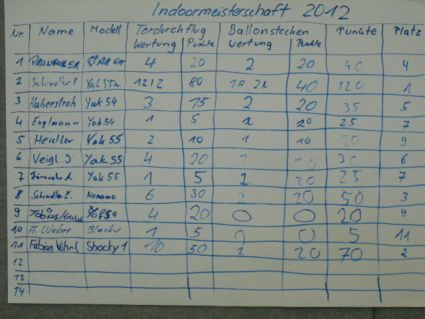 Indoormeisterschaft 2012
Nr. Name Modell Tordurchflug Ballonstechen Punkte Platz
Wertung Punkte Wertung Punkte
1 4 20 2 20 40 4
2 Schindler F. Yak 55m 12 80 40 120 1
3 Haberstroh Yak 54 3 15 2 20 35 5
4 Englmann Yak 54 1 5 2 20 25 7
5 Heidler Yak 55 2 10 1 10 20 9
6 Veigl J Yak 55 4 20 30 6
7 Yak 55 1 5 2 20 25 7
8 Schindler E. Noname 6 30 2 20 50 3
9 Tobias 4 20 0 0 20 9
10 Weber 1 5 0 0 5 11
11 Fabian Shocky 1 10 50 2 20 70 2
12
13
14